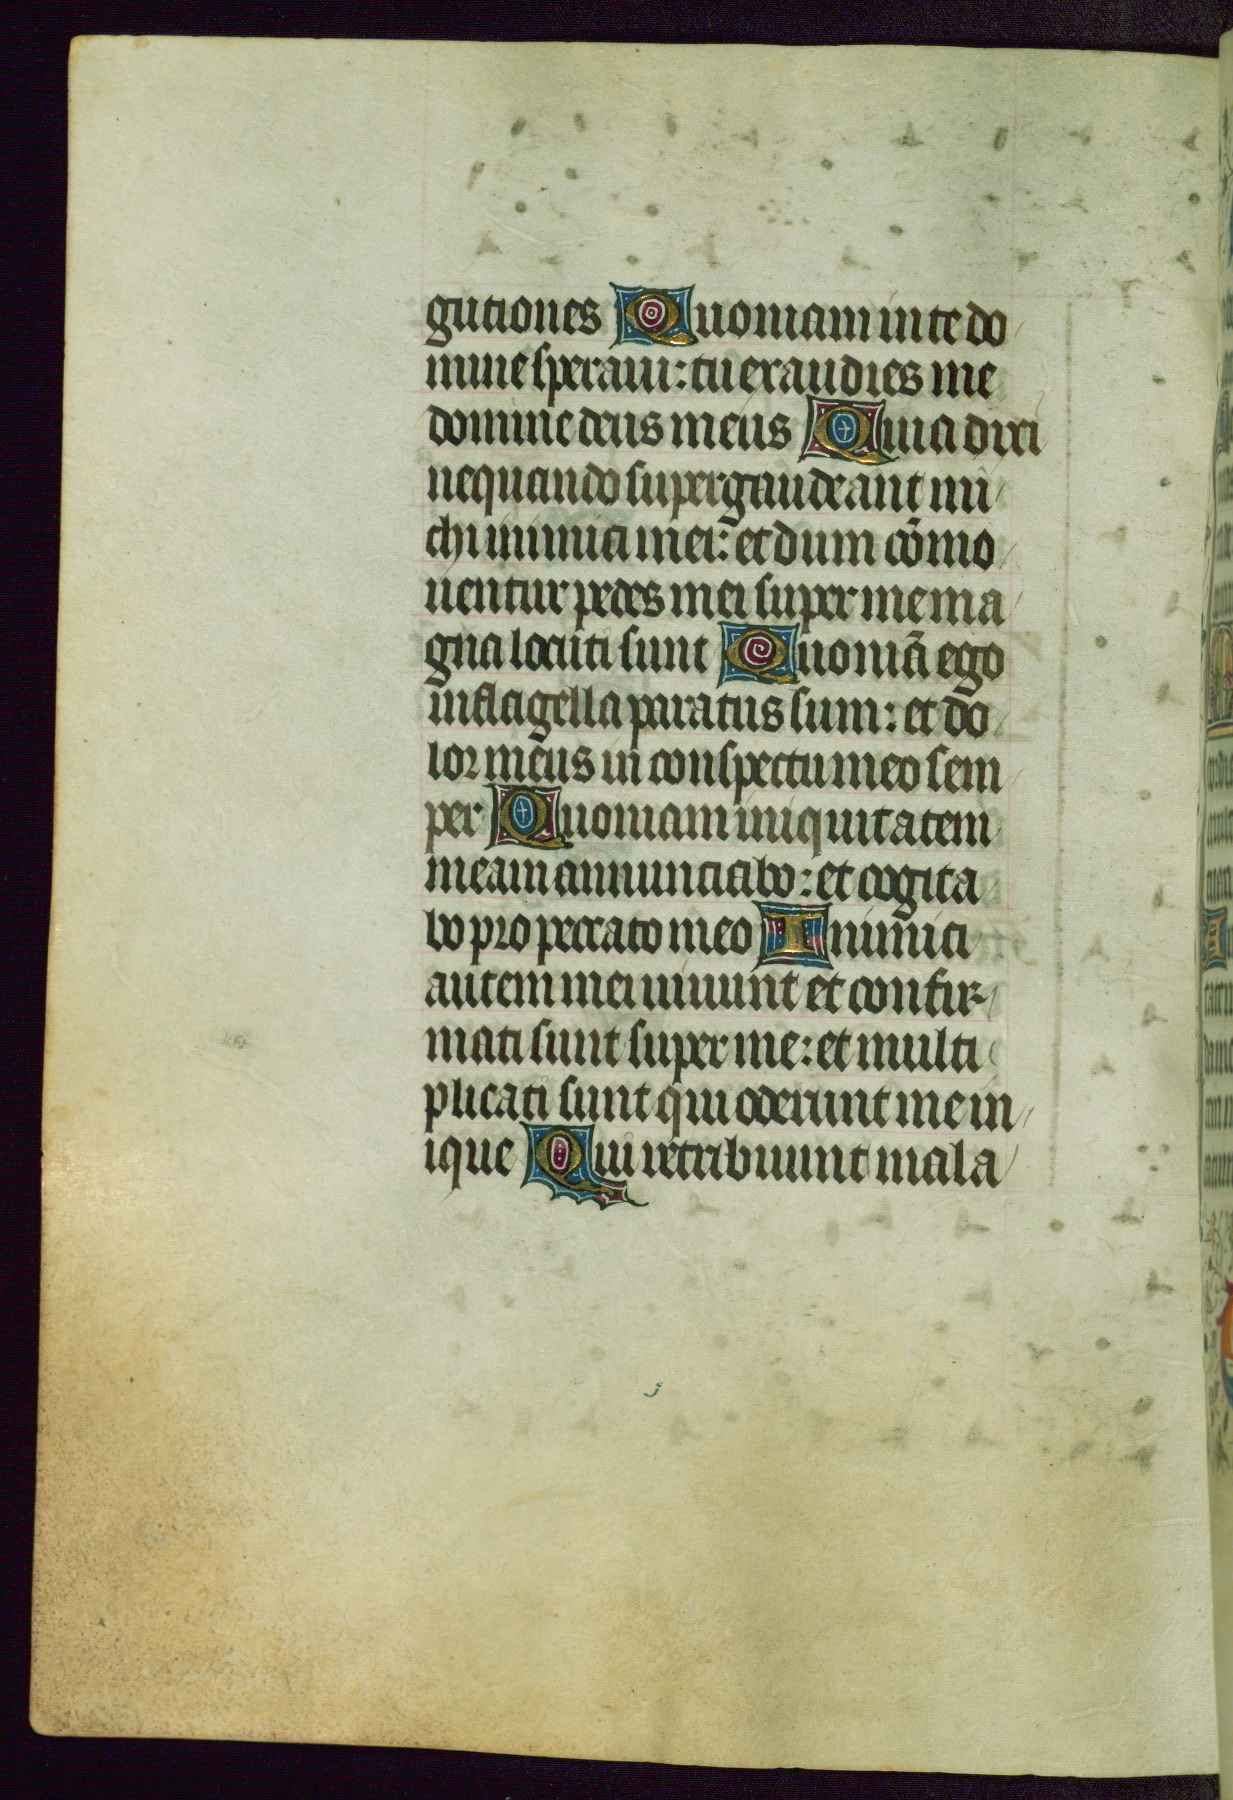 gutiones Quoniam in te do
mine speraui: tu exaudies me
domine deus meus Quia dixi
nequando supergaudeant mi
chi inimici mei: et dum cōmo
uentur pedes mei super me ma
gna locuti sunt Quoniā ego
in flagella paratus sum: et do
lor meus in conspectu meo sem
per Quoniam iniquitatem
meam annunciabo: et cogita
bo pro peccato meo Inimici
autem mei uiuunt et confir
mati sunt super me: et multi
plicati sunt qui oderunt me in
ique Qui retribuunt mala